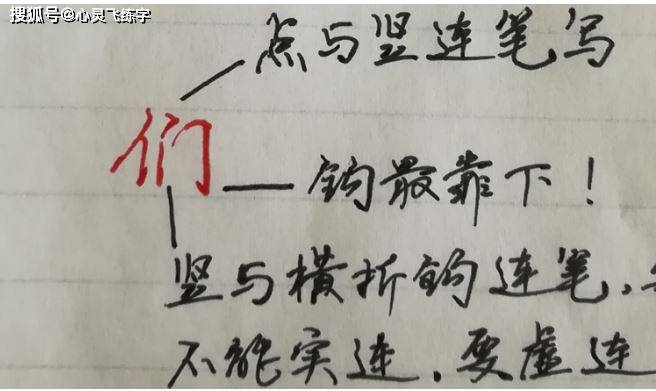 搜狐号@心灵飞练字
点与竖连笔写
们
钩最靠下!
竖与横折钩连笔,
不能实连.要虚连